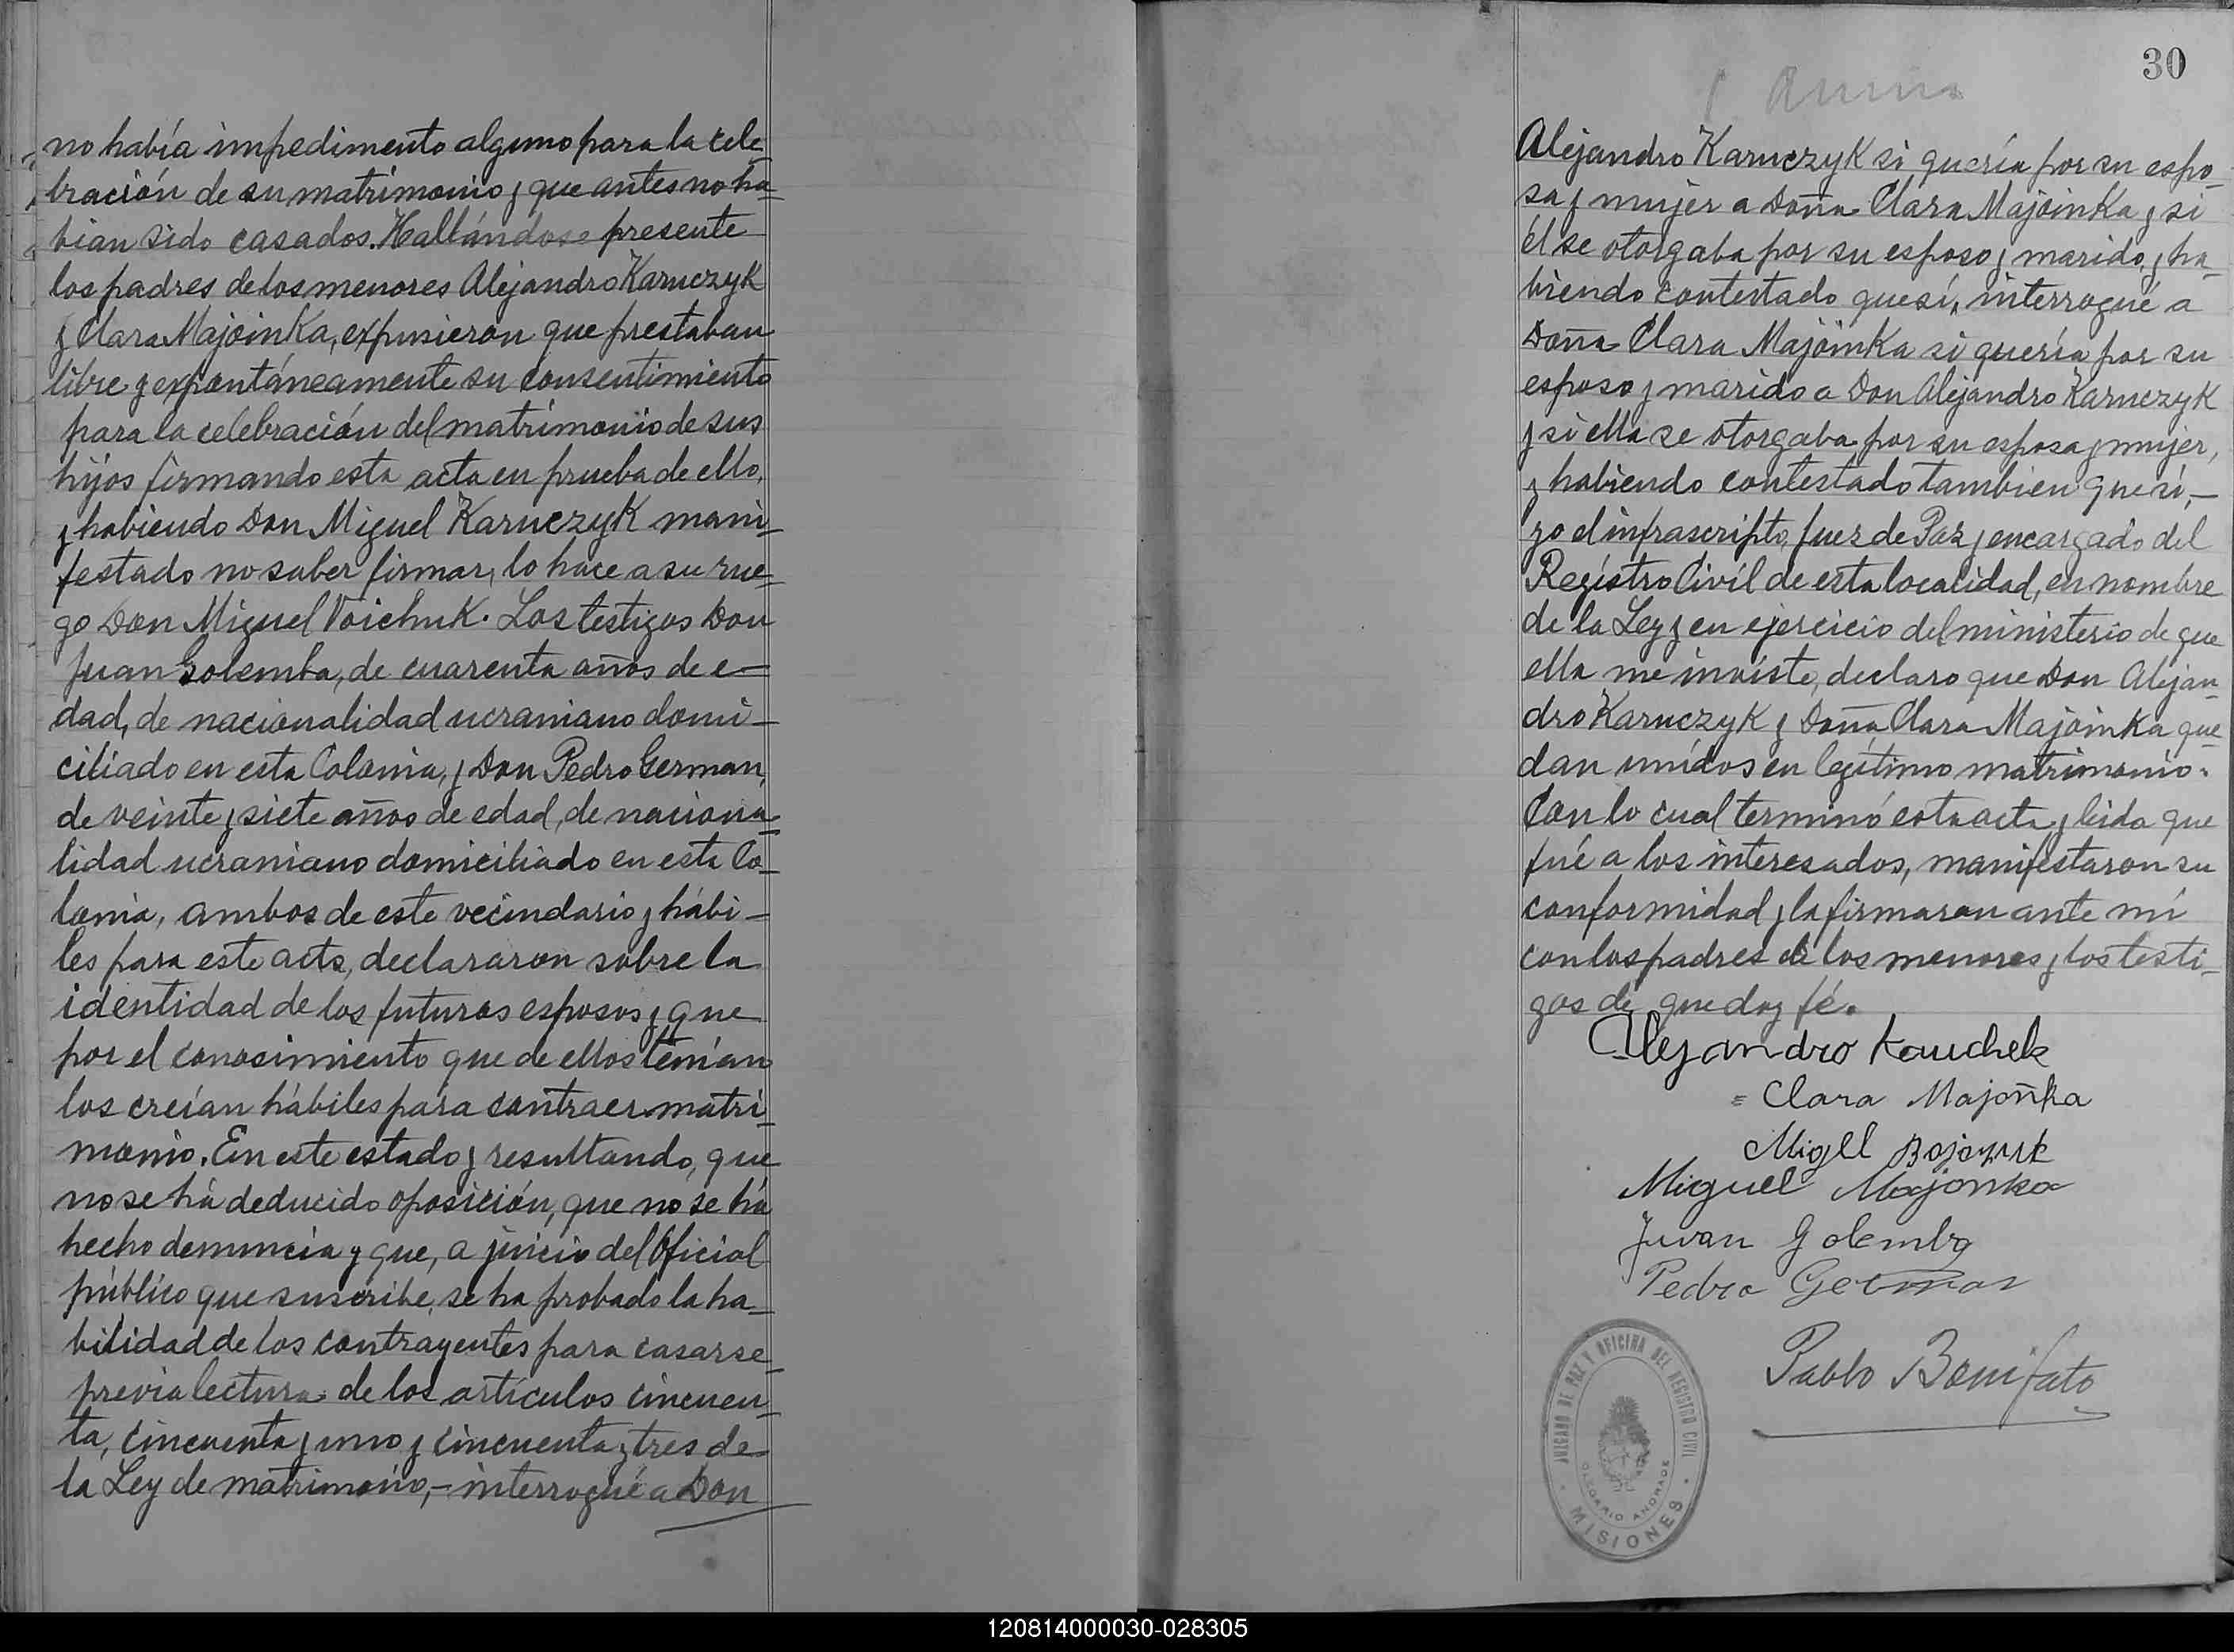 no había impedimento alguno para la cele-
bración de su matrimonio y que antes no ha-
bian sido casados. Hallándose presente
los padres de los menores Alejandro Karuczyk
y Clara Majoinka, expusieron que prestaban
libre y expontáneamente su consentimiento
para la celebración del matrimonio de sus
hijos firmando esta acta en prueba de ello,
y habiendo Don Miguel Karuczyk mani-
festado no saber firmar, lo hace a su rue-
go Don Miguel Voichuk. Los testigos Don
Juan Golemba, de cuarenta años de e-
dad, de nacionalidad ucraniano domi-
ciliado en esta Colonia, y Don Pedro German,
de veinte y siete años de edad, de naciona-
lidad ucraniano domiciliado en esta Co-
lonia, ambos de este vecindario y hábi-
les para este acto, declararon sobre la
identidad de los futuros esposos y que
por el conosimiento que de ellos tenían
los creían hábiles para contraer matri-
monio. En este estado y resultando, que
no se há deducido oposición, que no se há
hecho denuncia y que, a juicio del Oficial
público que suscribe, se ha probado la ha-
bilidad de los contrayentes para casarse
previa lectura de los artículos cincuen-
ta, cincuenta y uno y cincuenta y tres de
la Ley de matrimonio,- interrogué a Don
30
Alejandro Karuczyk si quería por su espo-
sa y mujer a Doña Clara Majoinka y si
él se otorgaba por su esposo y marido, y ha-
biendo contestado que sí, interrogué a
Doña Clara Majoinka si quería por su
esposo y marido a Don Alejandro Karuczyk
y si ella se otorgaba por su esposa y mujer,
y habiendo contestado tambien que sí,-
yo el infrascripto, Juez de Paz y encargado del
Registro Civil de esta localidad, en nombre
de la Ley y en ejercicio del ministerio de que
ella me inviste, declaro que Don Alejan-
dro Karuczyk y Doña Clara Majoinka que-
dan unídos en legítimo matrimonio.
Con lo cual terminó esta acta y leida que
fué a los interesados, manifestaron su
conformidad y la firmaron ante mí
con los padres de los menores y los testi-
gos de que doy fé.
Alejandro Kauchek
Clara Majoñka
Migll Bojczuk
Miguel Majonka
Juvan Golemba
Pedro German
Pablo Bonifato
JUZGADO DE PAZ Y OFICINA DEL REGISTRO CIVIL
OLEGARIO ANDRADE
MISIONES
120814000030-028305